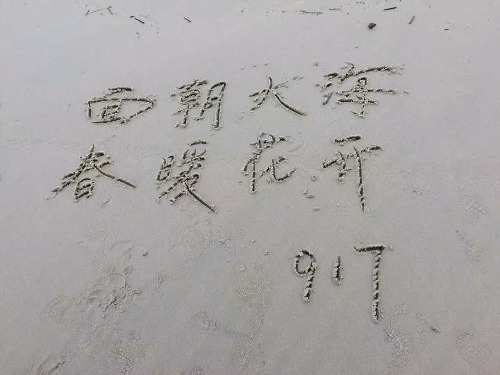 面朝大海
春暖花开
917